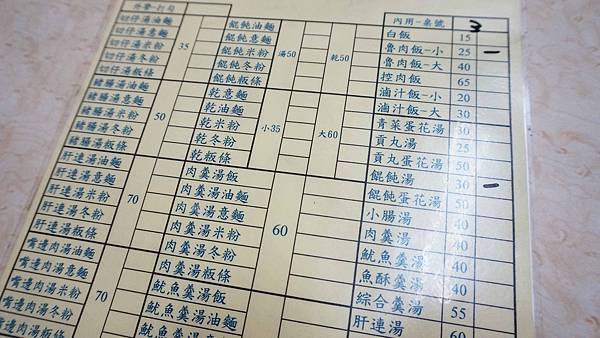 外帶-打勾
切仔湯油麵
切仔湯意麵
切仔湯米粉
切仔湯冬粉
切仔湯粄條
35
豬腸湯油麵
豬腸湯意麵
豬腸湯米粉
豬腸湯冬粉
豬腸湯粄條
50
肝連湯油麵
肝連湯意麵
肝連湯米粉
肝連湯冬粉
肝連湯粄條
70
嘴邊肉湯油麵
嘴邊肉湯意麵
嘴邊肉湯米粉
嘴邊肉湯冬粉
嘴邊肉湯粄條
70
餛飩油麵
餛飩意麵
餛飩米粉
餛飩冬粉
餛飩粄條
湯50
乾50
乾意麵
乾油麵
乾米粉
乾冬粉
乾粄條
小35
大60
肉羹湯飯
肉羹湯油麵
肉羹湯意麵
肉羹湯米粉
肉羹湯冬粉
肉羹湯粄條
魷魚羹湯飯
魷魚羹湯油麵
魷魚羹湯意麵
60
內用-桌號 3
白飯 15
魯肉飯-小 25 一
魯肉飯-大 40
控肉飯 65
滷汁飯-小 20
滷汁飯-大 30
青菜蛋花湯 30
貢丸湯 25
貢丸蛋花湯 50
餛飩湯 30 一
餛飩蛋花湯 50
小腸湯 40
肉羹湯 40
魷魚羹湯 40
魚酥羹湯 40
綜合羹湯 55
肝連湯 60